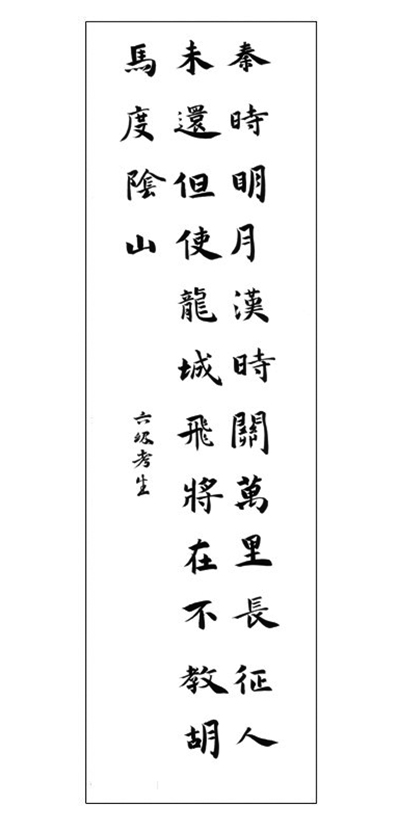 秦時明月漢時關萬里長征人
未還但使龍城飛將在不教胡
馬度陰山
六級考生